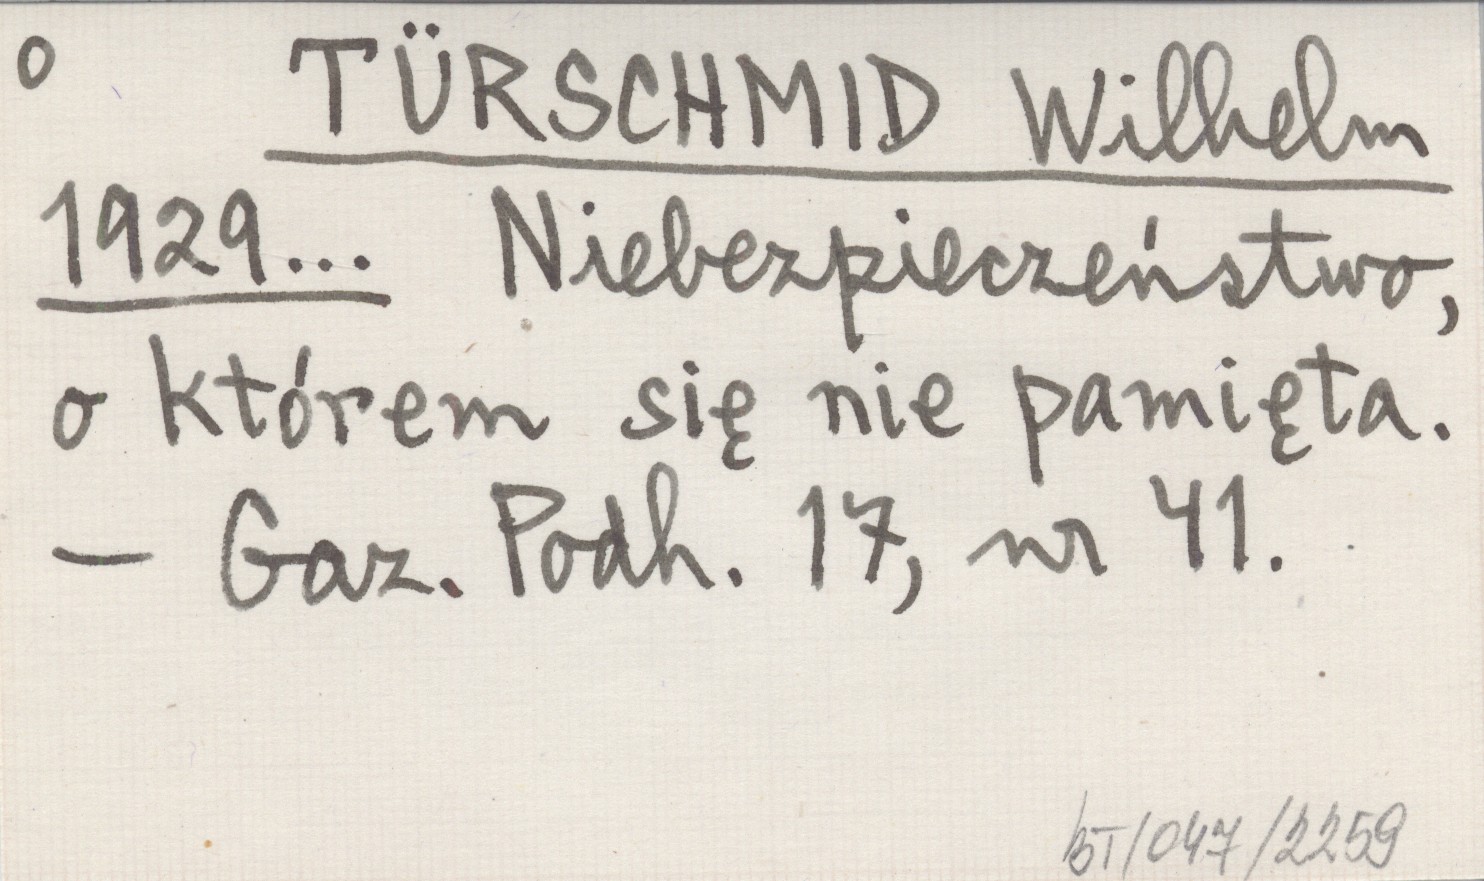 o TÜRSCHMID Wilhelm
1929... Niebezpieczeństwo,
o którem się nie pamięta.
— Gaz. Podh. 17, nr 41.
BT/047/2259